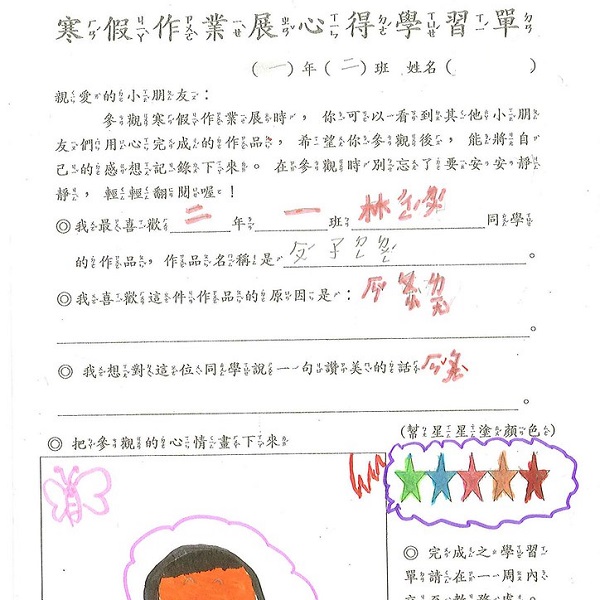 寒假作業展心得學習單
(一)年(二)班 姓名( )
親愛的小朋友：
參觀寒假作業展時，你可以看到其他小朋
友們用心完成的作品，希望你參觀後，能將自
己的感想記錄下來。在參觀時別忘了要安安靜
靜，輕輕翻閱喔！
◎我最喜歡二年一班林 同學
的作品，作品名稱是 。
◎我喜歡這件作品的原因是：
。
◎我想對這位同學說一句讚美的話
。
◎把參觀的心情畫下來
(幫星星塗顏色)
◎完成之學習
單請在一周內